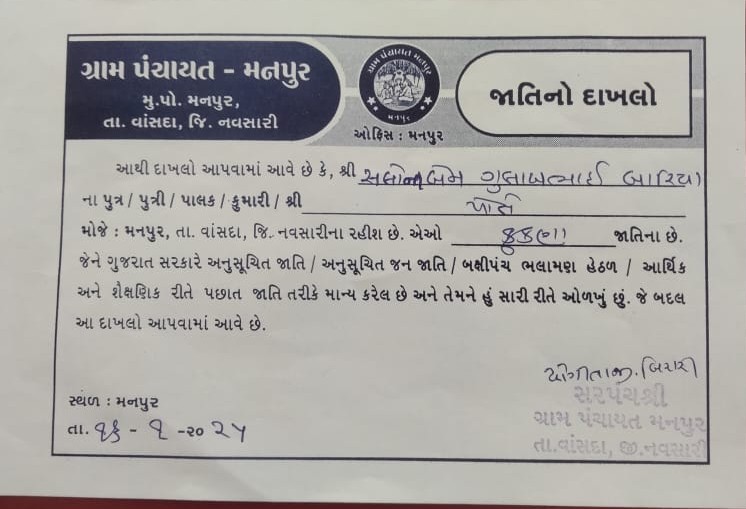 ગ્રામ પંચાયત - મનપુર
મુ.પો. મનપુર,
તા. વાંસદા, જિ. નવસારી
ગ્રામ પંચાયત મનપુર
મનપુર
ઓફિસ : મનપુર
જાતિનો દાખલો
આથી દાખલો આપવામાં આવે છે કે, શ્રી સલોનાબેન ગુલાબભાઈ બારિયા
ના પુત્ર / પુત્રી / પાલક / કુમારી / શ્રી
મોજે : મનપુર, તા. વાંસદા, જિ. નવસારીના રહીશ છે. એઓ કુકણા જાતિના છે.
જેને ગુજરાત સરકારે અનુસૂચિત જાતિ / અનુસૂચિત જન જાતિ / બક્ષીપંચ ભલામણ હેઠળ / આર્થિક
અને શૈક્ષણિક રીતે પછાત જાતિ તરીકે માન્ય કરેલ છે અને તેમને હું સારી રીતે ઓળખું છું. જે બદલ
આ દાખલો આપવામાં આવે છે.
યોગીતાજી. બિરારી
સ્થળ : મનપુર
સરપંચશ્રી
ગ્રામ પંચાયત મનપુર
તા. ૧૬ - ૧ -૨૦ ૨૫
તા.વાંસદા, જી.નવસારી